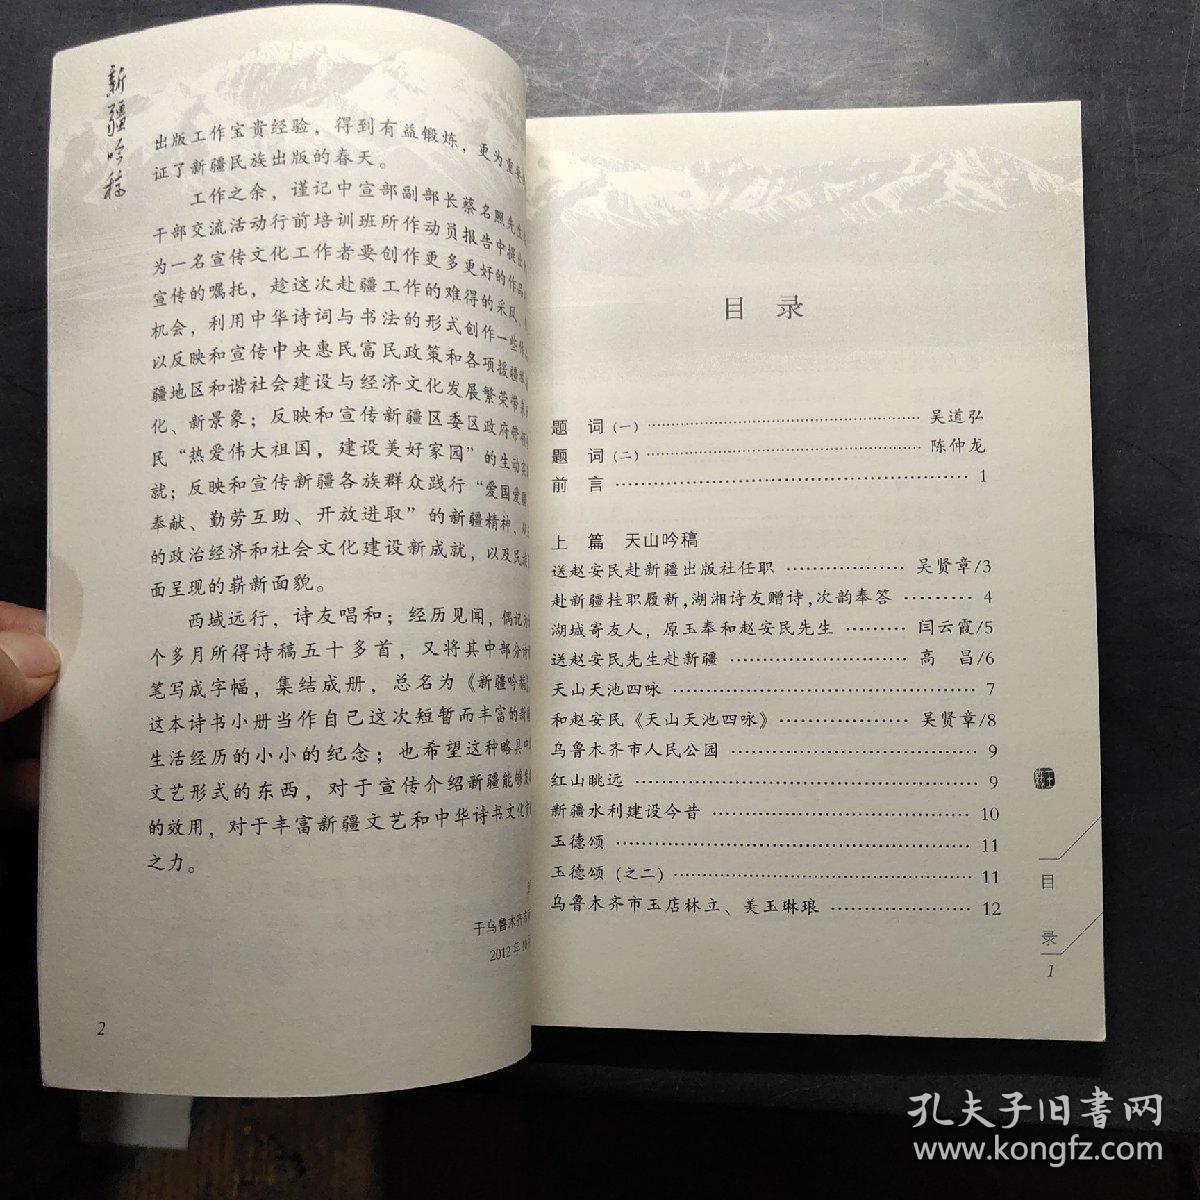 新疆吟稿
出版工作宝贵经验，得到有益锻炼，更为重要
证了新疆民族出版的春天。
工作之余，谨记中宣部副部长蔡名照先生
干部交流活动行前培训班所作动员报告中提出
为一名宣传文化工作者要创作更多更好的作品
宣传的嘱托，趁这次赴疆工作的难得的采风
机会，利用中华诗词与书法的形式创作一些
以反映和宣传中央惠民富民政策和各项援疆
疆地区和谐社会建设与经济文化发展繁荣带来
化、新景象；反映和宣传新疆区委区政府带领
民“热爱伟大祖国，建设美好家园”的生动实
就；反映和宣传新疆各族群众践行“爱国爱疆
奉献、勤劳互助、开放进取”的新疆精神、
的政治经济和社会文化建设新成就，以及民族
面呈现的崭新面貌。
西域远行，诗友唱和；经历见闻，偶记
个多月所得诗稿五十多首，又将其中部分诗
笔写成字幅，集结成册，总名为《新疆吟稿》
这本诗书小册当作自己这次短暂而丰富的新疆
生活经历的小小的纪念；也希望这种略具
文艺形式的东西，对于宣传介绍新疆能够
的效用，对于丰富新疆文艺和中华诗书文化
之力。
于乌鲁木齐市
2012年10
2
目 录
题 词（一）……吴道弘
题 词（二）……陈仲龙
前 言……1
上 篇 天山吟稿
送赵安民赴新疆出版社任职……吴贤章/3
赴新疆挂职履新，湖湘诗友赠诗，次韵奉答……4
湖城寄友人，原玉奉和赵安民先生……闫云霞/5
送赵安民先生赴新疆……高 昌/6
天山天池四咏……7
和赵安民《天山天池四咏》……吴贤章/8
乌鲁木齐市人民公园……9
红山眺远……9
新疆水利建设今昔……10
玉德颂……11
玉德颂（之二）……11
乌鲁木齐市玉店林立、美玉琳琅……12
目 录
1
孔夫子旧书网
www.kongfz.com